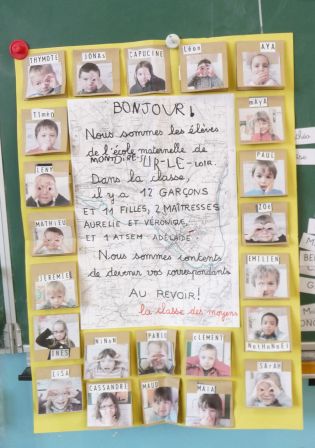 THYMOTE
JONAS
CAPUCINE
Léon
AYA
Timéo
MAYA
LENY
PAUL
MATHIEU
ZOÉ
JEREMIE
EMILIEN
INES
NATHANAËL
LISA
NINON
PABLO
CLEMENT
SARAH
CASSANDRE
MAUD
MAIA
BONJOUR!
Nous sommes les élèves
de l'école maternelle de
MONTOIRE-SUR-LE-LOIR.
Dans la classe,
il y a 12 GARÇONS
ET 11 FILLES, 2 MAÎTRESSES
AURELIE ET VÉRONIQUE,
ET 1 ATSEM: ADÉLAÏDE.
Nous sommes contents
de devenir vos correspondants.
AU REVOIR!
la classe des moyens